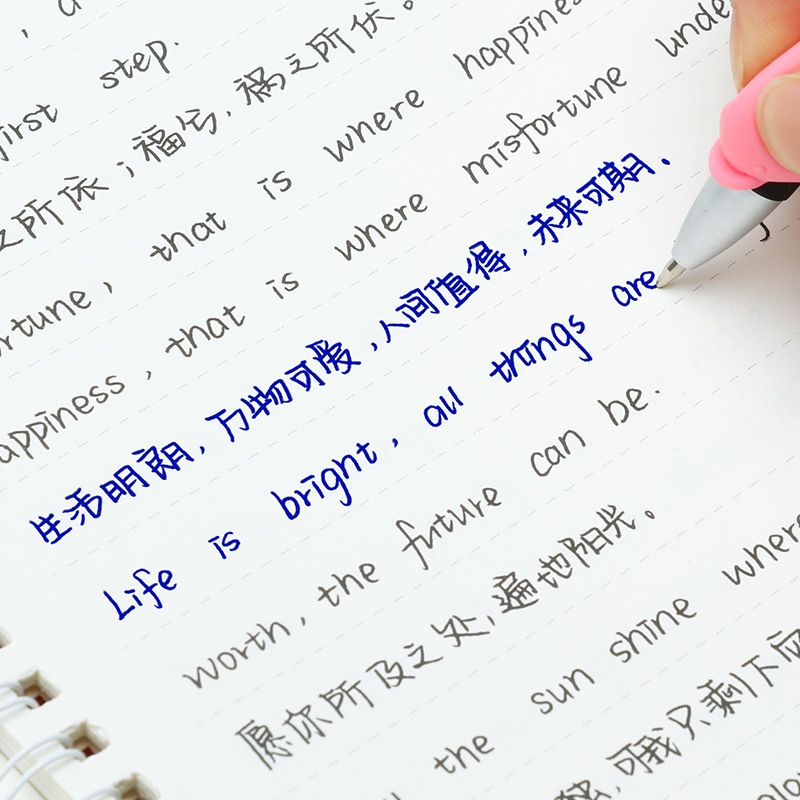 first step.
之所依；福兮，祸之所伏。
that is where happiness
that is where misfortune
生活明朗，万物可爱，人间值得，未来可期.
Life is bright, all things are
worth, the future can be.
愿你所及之处，遍地阳光。
the sun shine where
可我只剩下